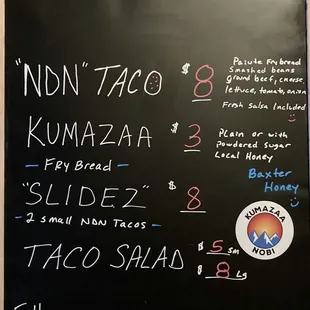 "NDN" TACO $ 8
Paiute Frybread
Smashed beans
ground beef, cheese,
lettuce, tomato, onion
Fresh Salsa Included
KUMAZAA $ 3
- FRY Bread -
Plain or with
Powdered Sugar
Local Honey
Baxter
Honey
"SLIDEZ" $ 8
- 2 small NDN Tacos -
KUMAZAA
NOBI
TACO SALAD $ 5 Sm
$ 8 Lg